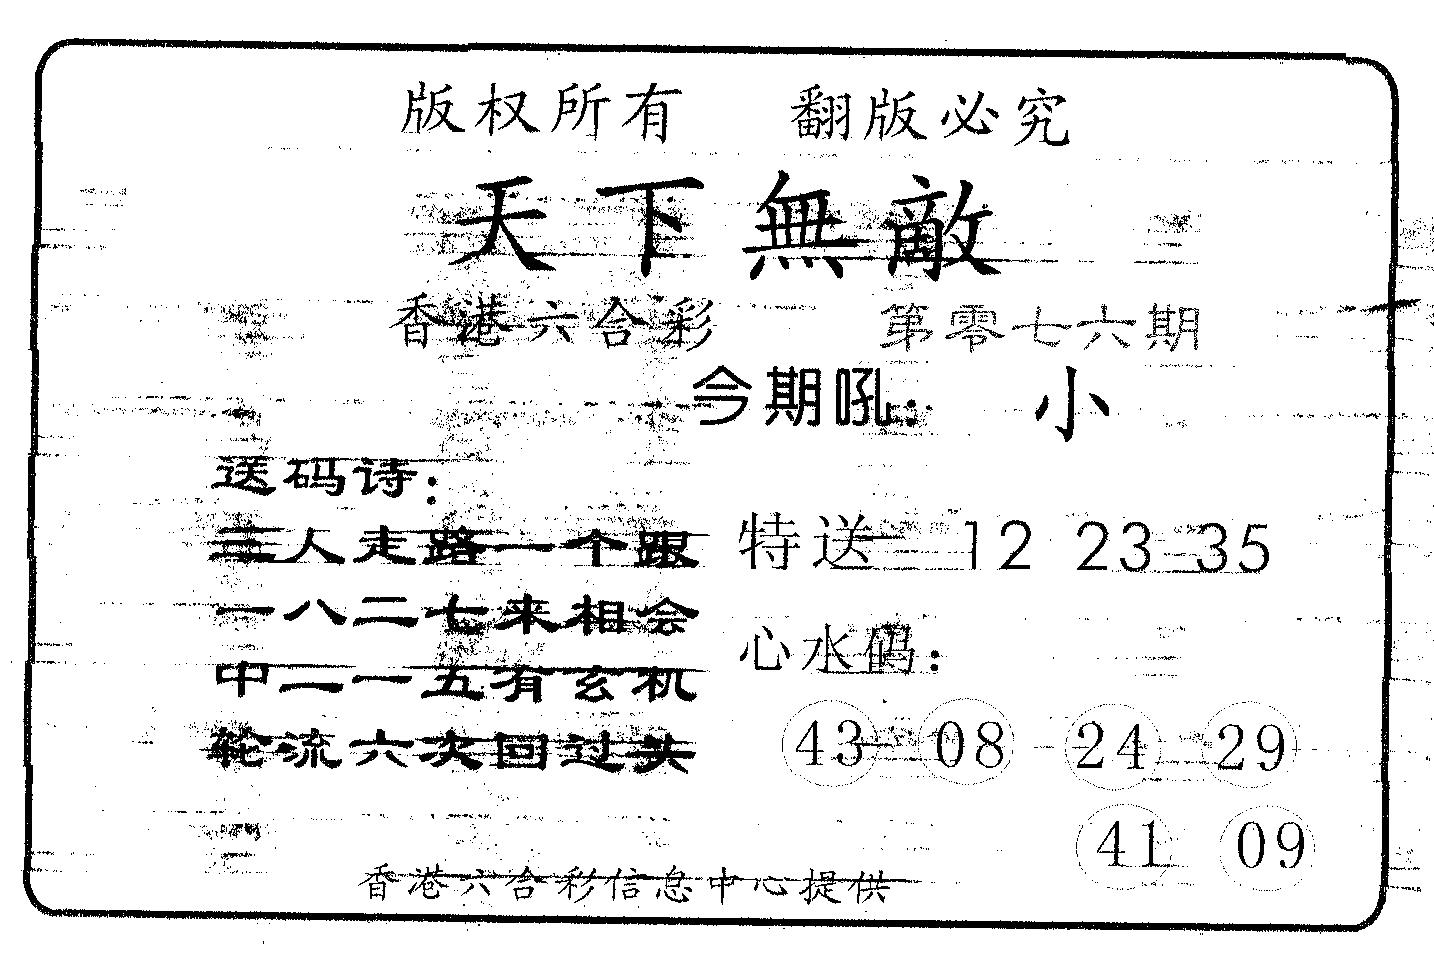 版权所有 翻版必究
天下無敵
香港六合彩 第零七六期
今期吼： 小
送码诗：
三人走路一个跟
一八二七来相会
中二一五有玄机
轮流六次回过头
特送 12 23 35
心水码：
43 08 24 29
41 09
香港六合彩信息中心提供